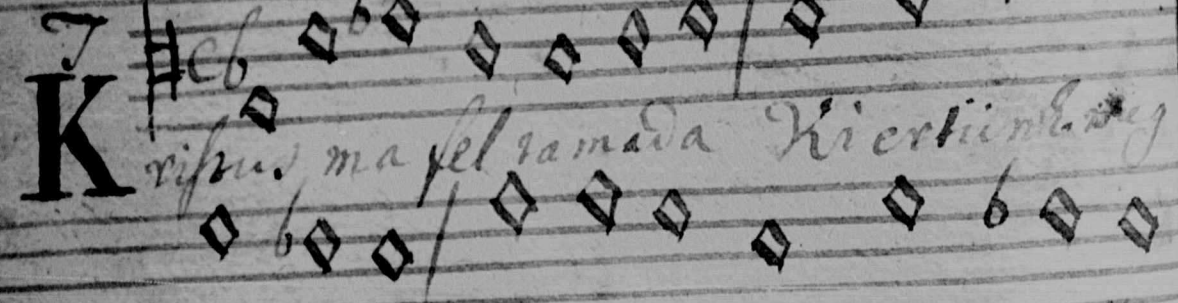 Kristus ma fel tamada Ki ertünk meg